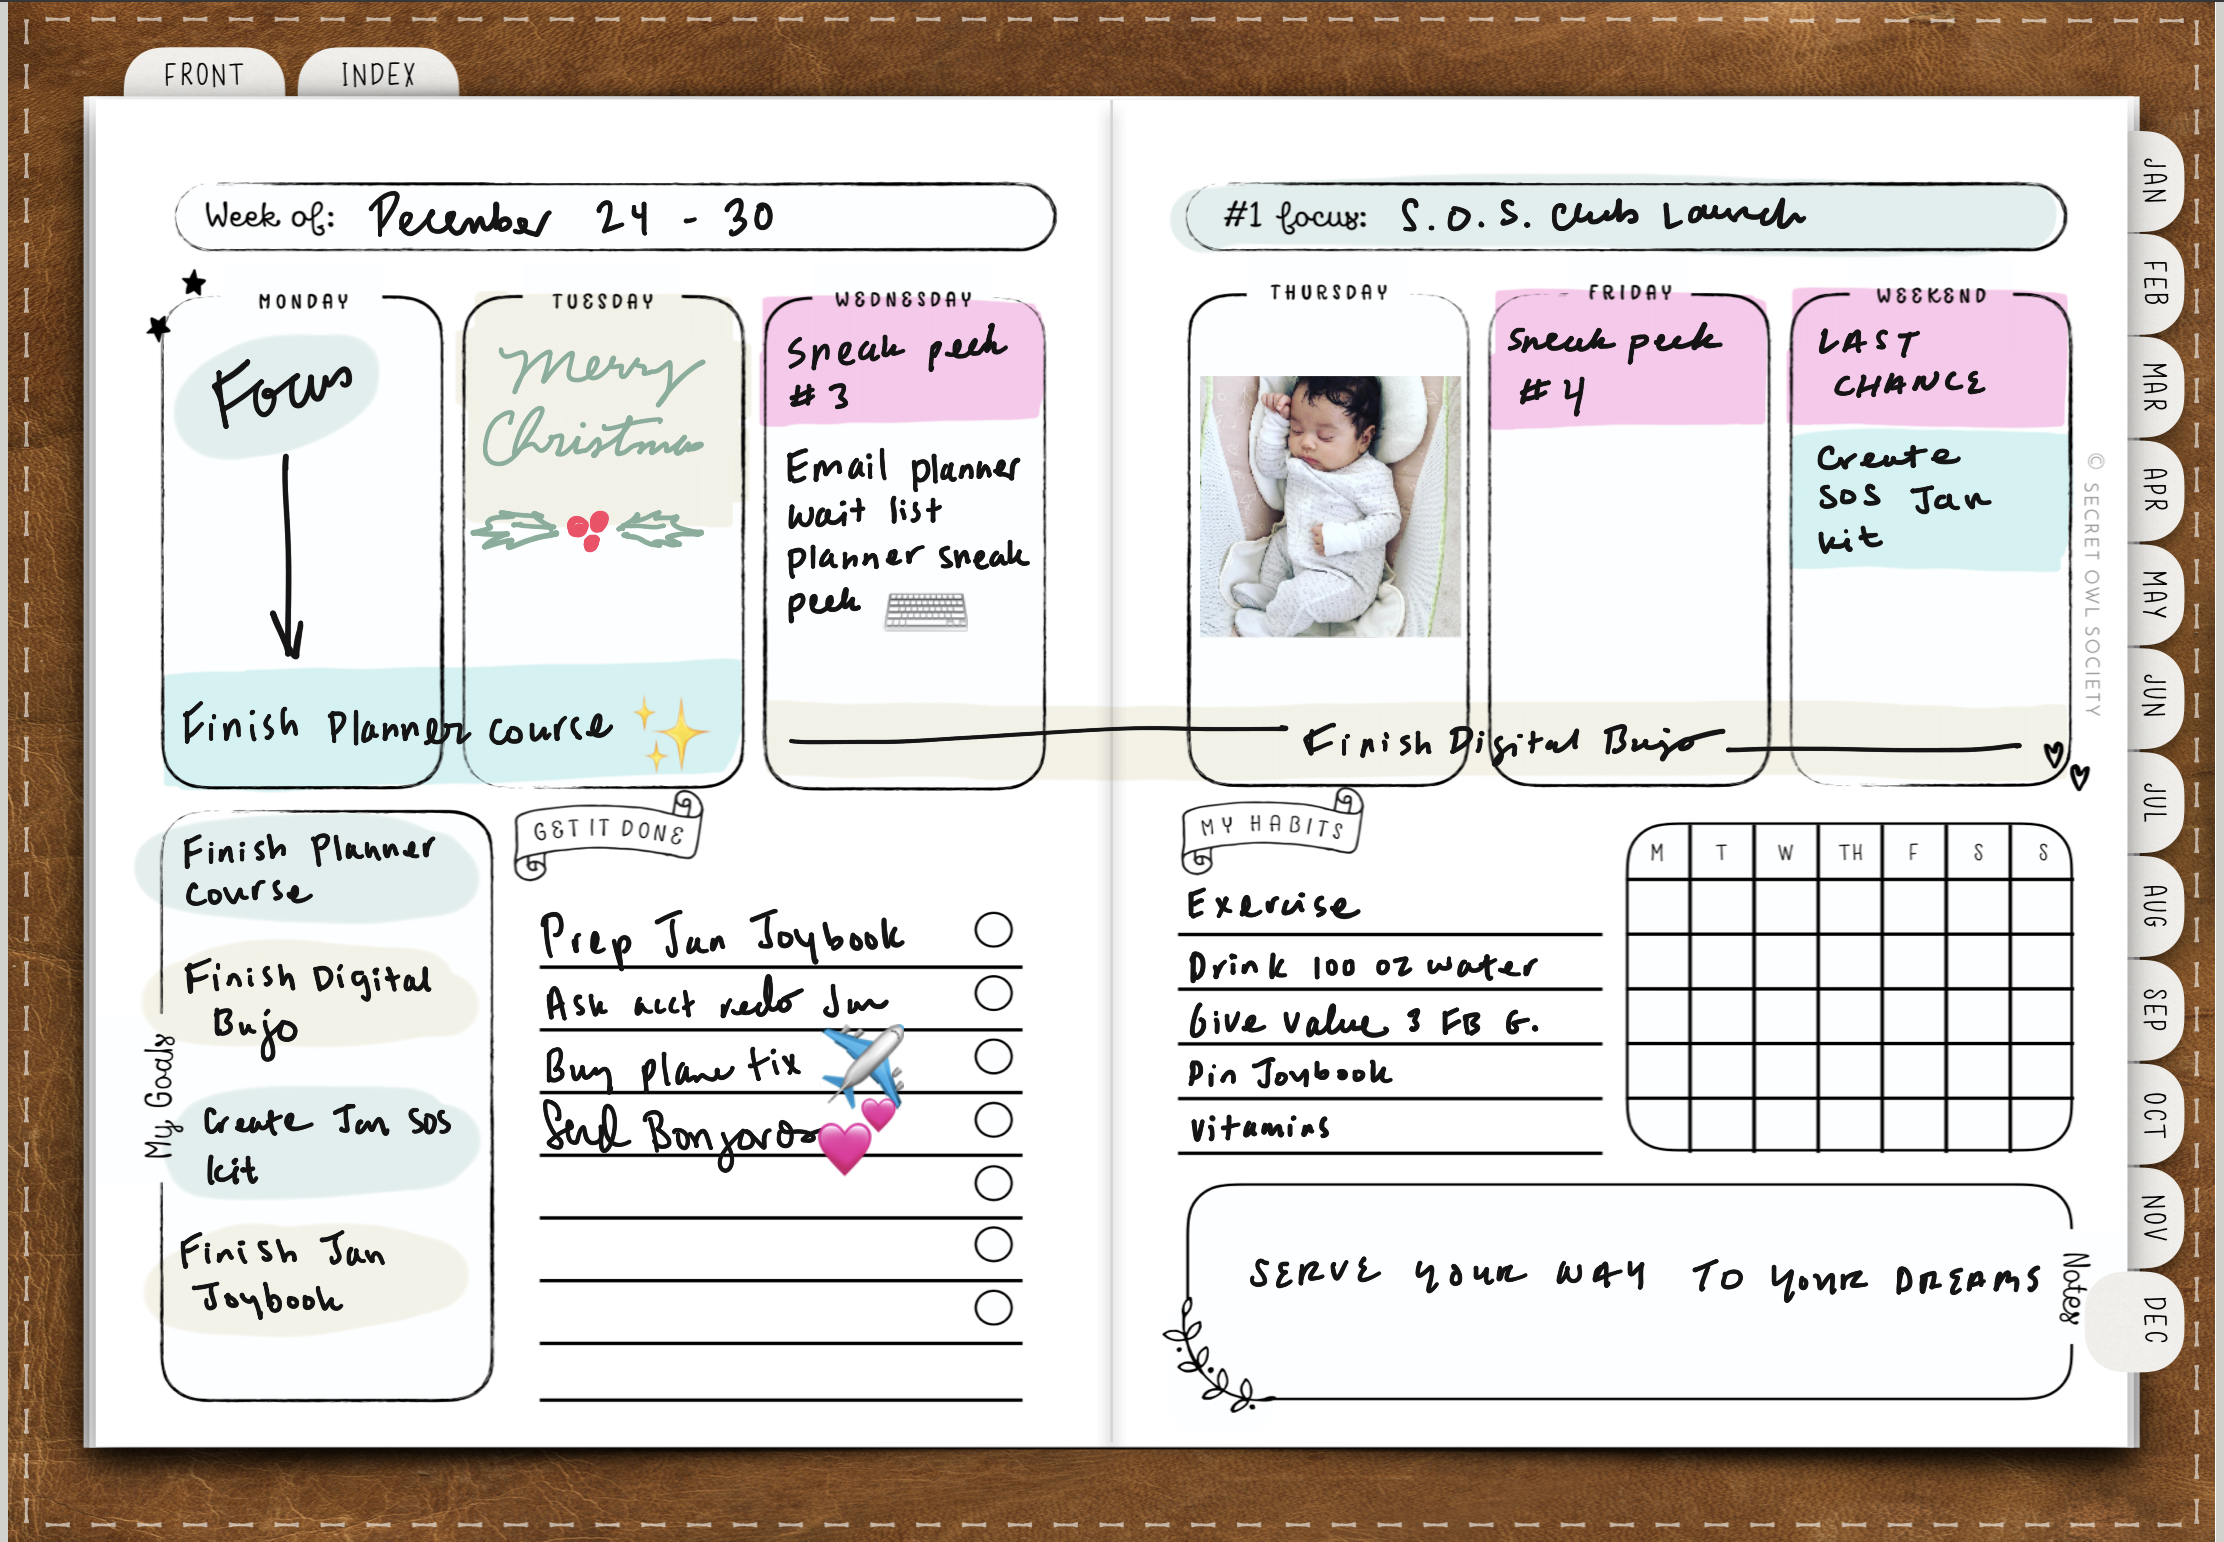 FRONT
INDEX
Week of: December 24 - 30
MONDAY
Focus
TUESDAY
Merry
Christmas
WEDNESDAY
Sneak peek
#3
Email planner
wait list
planner sneak
peek
Finish Planner course
My Goals
Finish Planner
Course
Finish Digital
Bujo
Create Jan SOS
kit
Finish Jan
Joybook
GET IT DONE
Prep Jan Joybook
Ask acct redo Jan
Buy plane tix
Send Bonjoros
#1 focus: S.O.S. Club Launch
THURSDAY
FRIDAY
Sneak peek
#4
WEEKEND
LAST
CHANCE
Create
SOS Jan
kit
Finish Digital Bujo
MY HABITS
M T W TH F S S
Exercise
Drink 100 oz water
Give Value 3 FB G.
Pin Joybook
Vitamins
Notes
SERVE YOUR WAY TO YOUR DREAMS
© SECRET OWL SOCIETY
JAN
FEB
MAR
APR
MAY
JUN
JUL
AUG
SEP
OCT
NOV
DEC